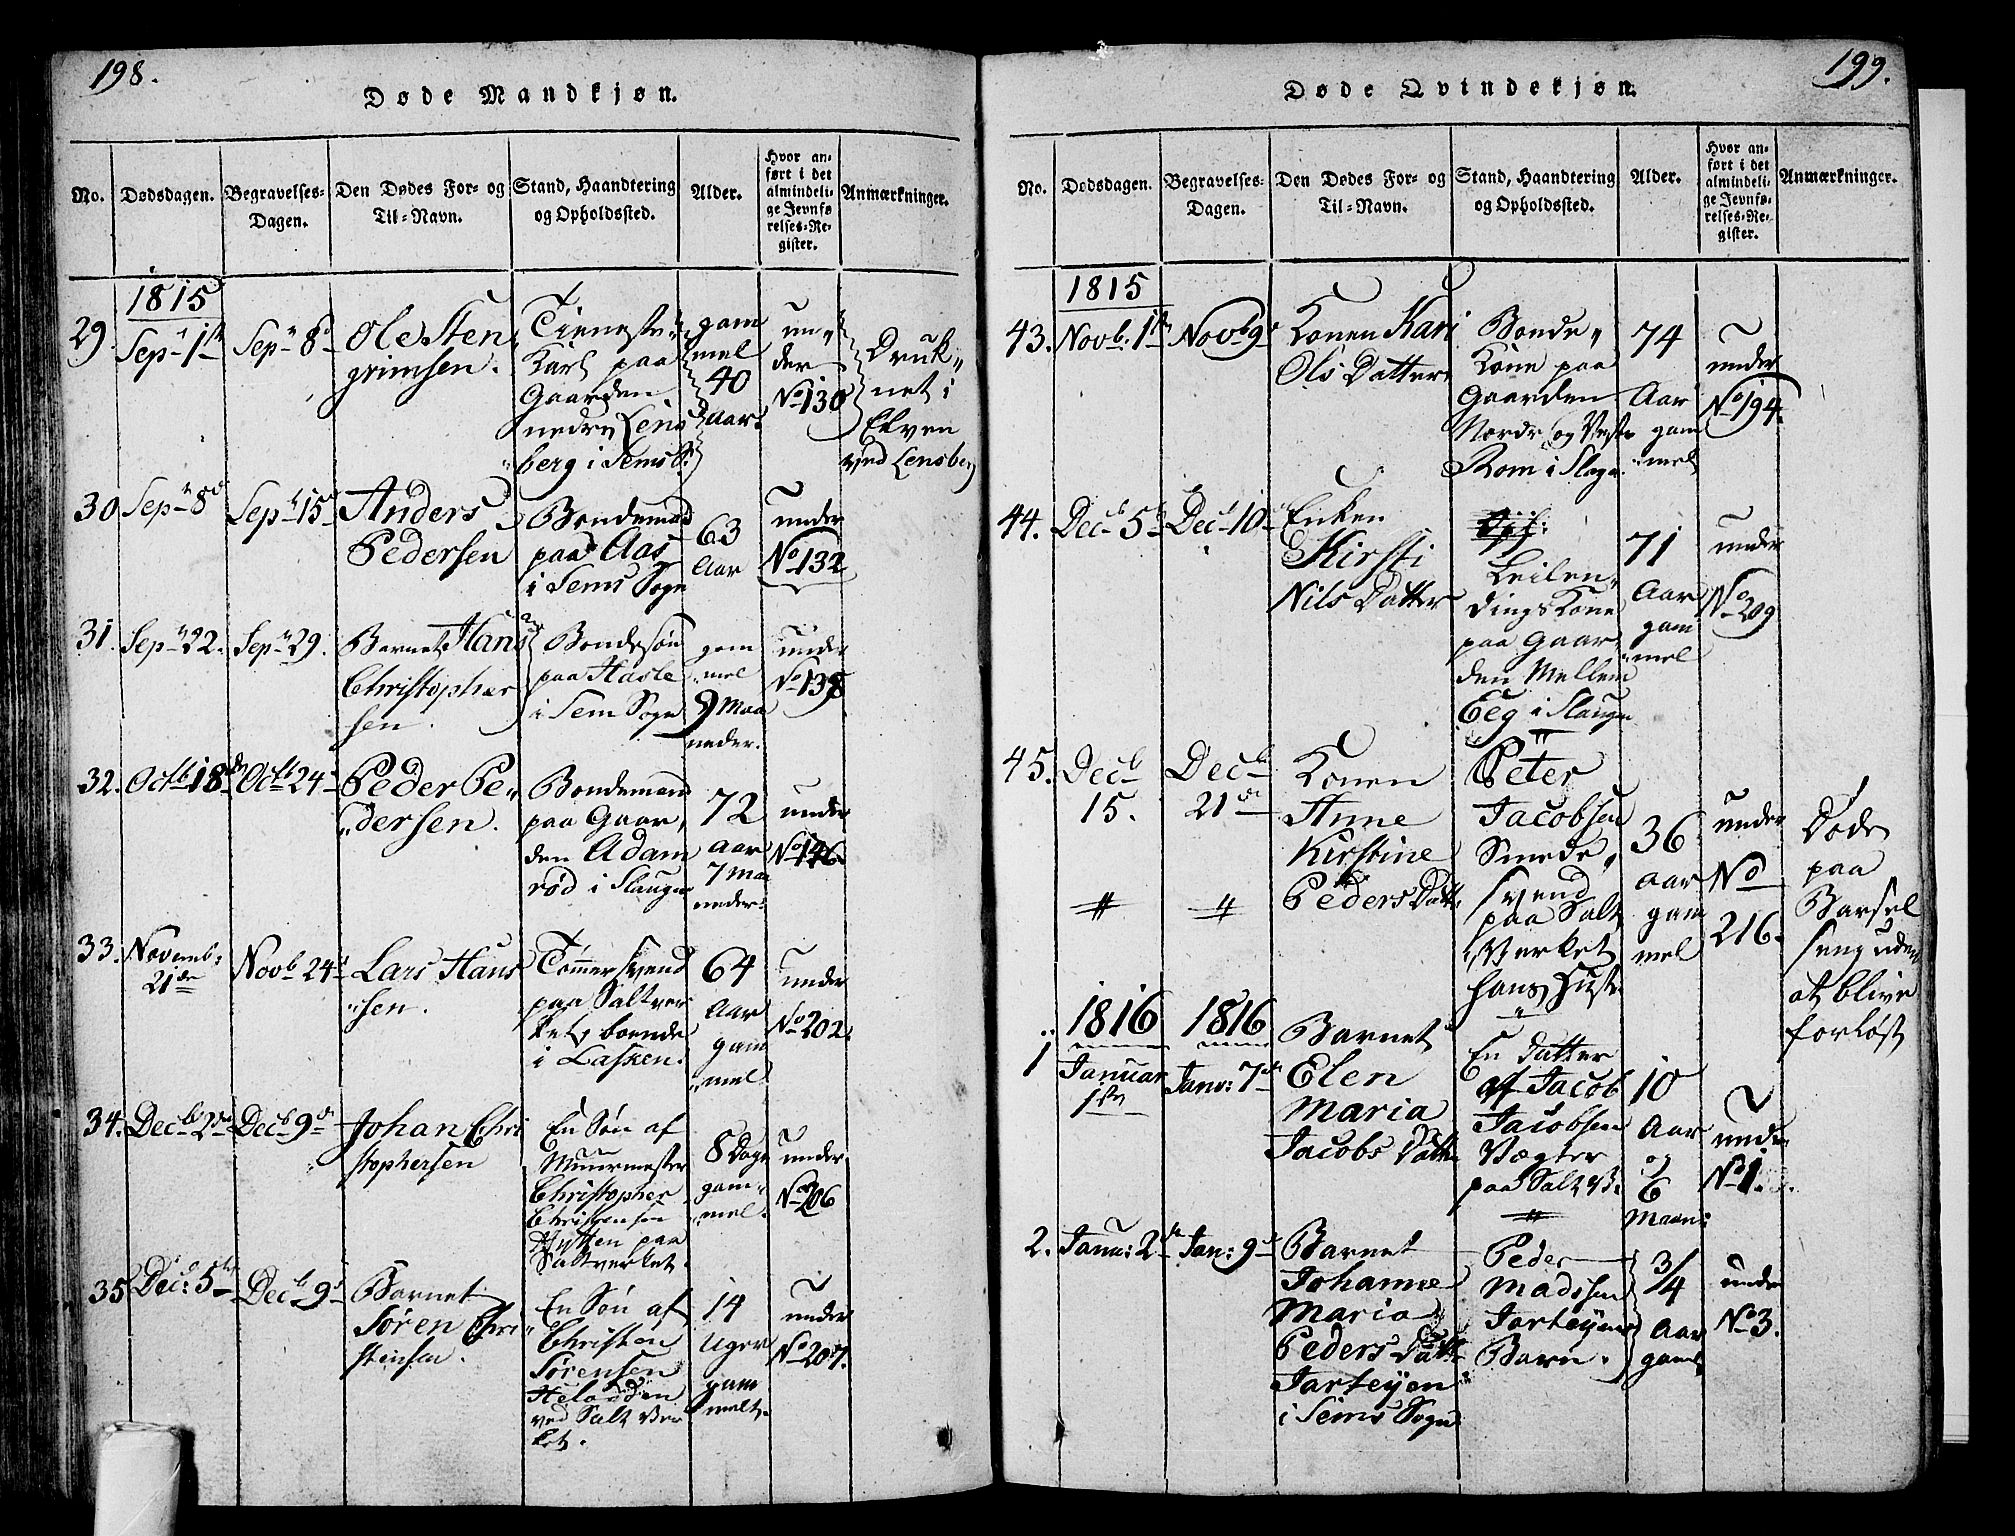 198.
Døde Mandkjøn.
No.
Dødsdagen.
Begravelses-
Dagen.
Den Dødes For- og
Til-Navn.
Stand, Haandtering
og Opholdssted.
Alder.
Hvor an-
ført i det
almindeli-
ge Jevnfø-
relses-Re-
gister.
Anmærkninger.
1815
29
Sepr 1ste
Sepr 8de
Ole Sten
grimsen.
Tieneste
Karl paa
Gaarden
nedre Lens
berg i Sems S.
gam
mel
40
Aar.
un-
der
No 130
Druk-
net i
Elven
ved Lensberg
30
Sepr 8de
Sepr 15de
Anders
Pedersen
Bondemand
paa Aas
i Sems Sogn
63
Aar
under
No 132
31.
Sepr 22.
Sepr 29.
Barnet Hans
Christopher
sen.
Bondesøn
paa Hasle
i Sem Sogn
gam
mel
9 Maa
neder.
under
No 138
32.
Octb 18de
Octb 24de
Peder Pe-
dersen.
Bondemand
paa Gaar-
den Adam
rød i Slaugn
72
Aar
7 Maa
neder.
under
No 146.
33.
Novemb:
21de
Novb 24de
Lars Hans
sen.
Tømmersvend
paa Saltver
ket boende
i Lasken.
64
Aar
gam
mel
under
No 202.
34.
Decb 2den
Decb 9de
Johan Chri
stophersen
En Søn af
Muurmester
Christopher
Christensen
Hytten paa
Saltverket.
8 Dage
gam-
mel.
under
No 206
35
Dec: 5te
Decb 9de
Barnet
Søren Chri-
stensen.
En Søn af
Christen
Sørensen
ved Salt Ver
ket.
14
Uger
gam
melt.
under
No 207.
199.
Døde Qvindekjøn.
No.
Dødsdagen.
Begravelses-
Dagen.
Den Dødes For- og
Til-Navn.
Stand, Haandtering
og Opholdssted.
Alder.
Hvor an-
ført i det
almindeli-
ge Jevnfø-
relses-Re-
gister.
Anmærkninger.
1815
43.
Novb. 1ste
Novb 9de
Konen Kari
Ols Datter
Bonde-
Kone paa
Gaarden
Nordr og Vestr
Rom i Slagn
74
Aar
gam
mel
under
No 194.
44.
Decb 5te
Decb 10de
Enken
Kirsti
Nils Datter
Leilen-
dings Kone
paa Gaar
den Mellem
Eeg i Slaugn
71
Aar
gam
mel
under
No 209
45.
Decb
15.
Decb
21de
Konen
Anne
Kirstine
Peders Datt.
Peter
Jacobsen
Smede-
svend
paa Salt
Verket
hans Hustr.
36
Aar
gam
mel
under
No
216.
Døde
paa
Barsel
seng uden
at blive
forløst
1816
1816
1
Januar
1ste
Janu: 7de
Barnet
Elen
Maria
Jacobs Datter
En Datter
af Jacob
Jacobsen
Vægter
paa Salt V.
10
Aar
og
6
Maan:
under
No 1.
2.
Janu: 2den
Jan: 9de
Barnet
Johanne
Maria
Peders Datt
Jarteyen
i Sems Sogn
Peder
Madssen
Jarteyens
Barn.
3/4
Aar
gaml
under
No 3.